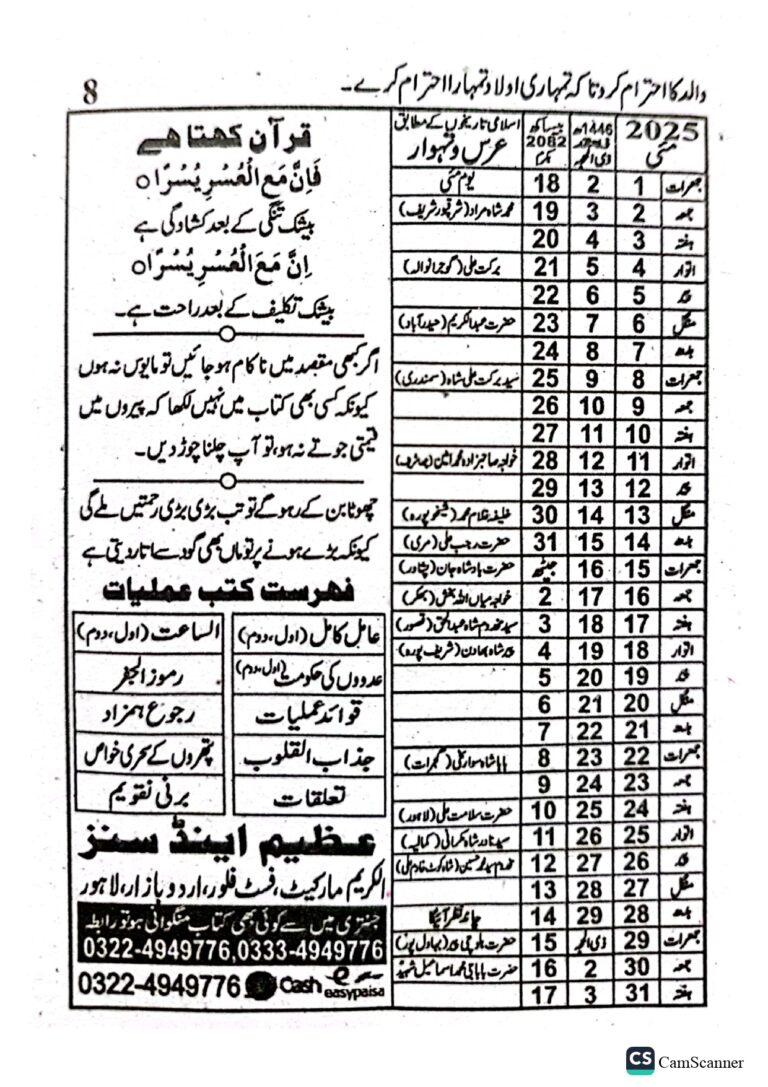 والد کا احترام کرو تاکہ تمہاری اولاد تمہارا احترام کرے۔
8
2025 مئی
1446ھ ذیقعد ذی الحج
بیساکھ 2082 بکرمی
اسلامی تاریخوں کے مطابق
عرس و تہوار
جمعرات 1 2 18 یوم مئی
جمعہ 2 3 19 محمد شاہ مراد (شرقپور شریف)
ہفتہ 3 4 20
اتوار 4 5 21 برکت علی (گوجرانوالہ)
پیر 5 6 22
منگل 6 7 23 حضرت عبدالکریم (حیدرآباد)
بدھ 7 8 24
جمعرات 8 9 25 سید برکت علی شاہ (سمندری)
جمعہ 9 10 26
ہفتہ 10 11 27
اتوار 11 12 28 خواجہ صاحبزادہ محمد امین
پیر 12 13 29
منگل 13 14 30 خلیفہ غلام محمد (شیخوپورہ)
بدھ 14 15 31 حضرت رجب علی (مری)
جمعرات 15 16 جیٹھ حضرت بادشاہ جان (پشاور)
جمعہ 16 17 2 خواجہ میاں اللہ بخش (بھکر)
ہفتہ 17 18 3 سید مخدوم شاہ عبدالحق (قصور)
اتوار 18 19 4 پیر شاہ بھاون (شریف پورہ)
پیر 19 20 5
منگل 20 21 6
بدھ 21 22 7
جمعرات 22 23 8 بابا شاہ سوار علی (گجرات)
جمعہ 23 24 9
ہفتہ 24 25 10 حضرت سلامت علی (لاہور)
اتوار 25 26 11 سید نادر شاہ کرمانی (کمالیہ)
پیر 26 27 12 مخدوم سید محمد حسین
منگل 27 28 13
بدھ 28 29 14 چاند نظر آئیگا
جمعرات 29 ذی الحج 15 حضرت بلوچی پیر (بہاول پور)
جمعہ 30 2 16 حضرت باباجی محمد اسماعیل شہید
ہفتہ 31 3 17
قرآن کہتا ہے
فَاِنَّ مَعَ الْعُسْرِ یُسْرًا ○
بیشک تنگی کے بعد کشادگی ہے
اِنَّ مَعَ الْعُسْرِ یُسْرًا ○
بیشک تکلیف کے بعد راحت ہے۔
اگر کبھی مقصد میں ناکام ہو جائیں تو مایوس نہ ہوں
کیونکہ کسی بھی کتاب میں نہیں لکھا کہ پیروں میں
قیمتی جوتے نہ ہو، تو آپ چلنا چھوڑ دیں۔
چھوٹا بن کے رہو گے تو تب بڑی بڑی رحمتیں ملے گی
کیونکہ بڑے ہونے پر تو ماں بھی گود سے اتار دیتی ہے
فہرست کتب عملیات
عامل کامل (اول، دوم) الساعت (اول، دوم)
عددوں کی حکومت (اول، دوم) رموز الجفر
قوائد عملیات رجوع ہمزاد
جذاب القلوب پتھروں کے سحری خواص
تعلقات برنی تقویم
عظیم اینڈ سنز
الکریم مارکیٹ، فسٹ فلور، اردو بازار، لاہور
جنتری میں سے کوئی بھی کتاب منگوانی ہو تو رابطہ
0322-4949776,0333-4949776
0322-4949776 Cash easypaisa
CS CamScanner